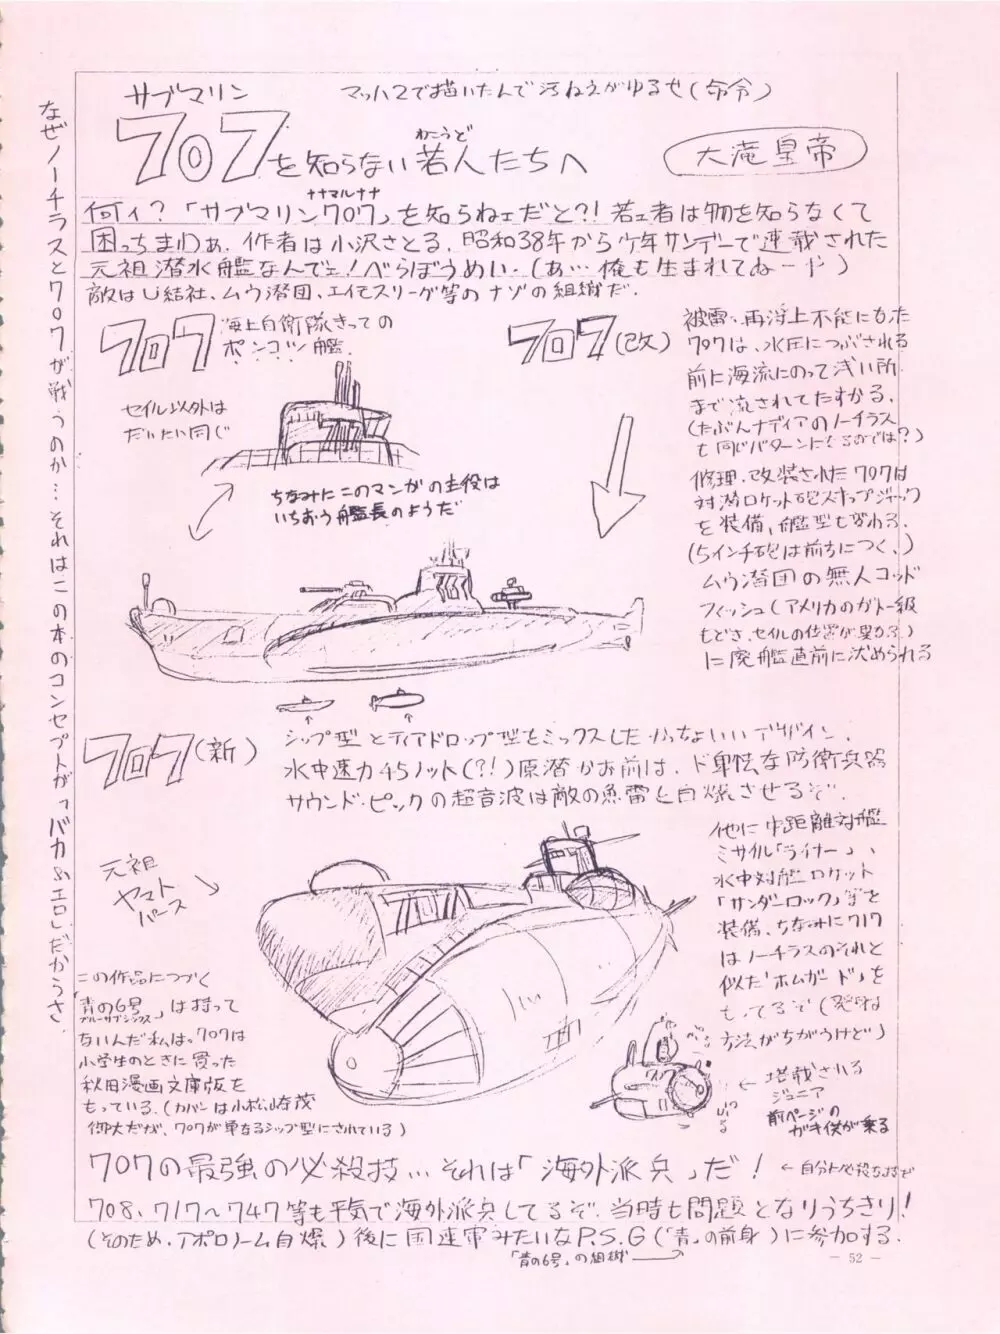 サブマリン
マッハ2で描いたんで汚ねえがゆるせ(命令)
707を知らない若人たちへ
わこうど
大滝皇帝
ナナマルナナ
何ィ?「サブマリン707」を知らねェだと?!若ェ者は物を知らなくて
困っちまわぁ.作者は小沢さとる.昭和38年から少年サンデーで連載された
元祖潜水艦なんでェ!べらぼうめい.(あ…俺も生まれてねーや)
敵はU結社、ムウ潜団、エイモスリーグ等のナゾの組織だ.
なぜノーチラスと707が戦うのか…それはこの本のコンセプトが「バカ&エロ」だからさ.
707
海上自衛隊きっての
ポンコツ艦.
セイル以外は
だいたい同じ
ちなみにこのマンガの主役は
いちおう艦長のようだ
707(改)
被雷、再浮上不能になった
707は、水圧につぶされる
前に海流にのって浅い所
まで流されてたすかる.
(たぶんナディアのノーチラス
も同じパターンになるのでは?)
修理・改装された707は
対潜ロケット砲スキップジャック
を装備、艦型も変わる.
(5インチ砲は前方につく、)
ムウ潜団の無人コッド
フィッシュ(アメリカのガトー級
もどき、セイルの位置が異なる)
に廃艦直前に沈められる
707(新)
シップ型とティアドロップ型をミックスしたかっちょいいデザイン.
水中速力45ノット(?!)原潜かお前は.ド卑怯な防衛兵器
サウンド・ピックの超音波は敵の魚雷を自爆させるぞ.
元祖
ヤマト
パース
他に中距離対艦
ミサイル「ライナー」、
水中対艦ロケット
「サンダーロック」等を
装備、ちなみに717
はノーチラスのそれと
似た「ホムガード」を
もってるぞ(発射
方法がちがうけど)
この作品につづく
「青の6号」は持って
ブルーサブシックス
ないんだ私は。707は
小学生のときに買った
秋田漫画文庫版を
もっている.(カバーは小松崎茂
御大だが、707が単なるシップ型にされている)
←搭載される
ジュニア
前ページの
ガキ供が乗る
707の最強の必殺技…それは「海外派兵」だ!
708、717〜747等も平気で海外派兵してるぞ.当時も問題となりうちきり!
(そのため、アポロノーム自爆)後に国連軍みたいなP.S.G(「青」の前身)に参加する.
「青の6号」の組織
— 52 —